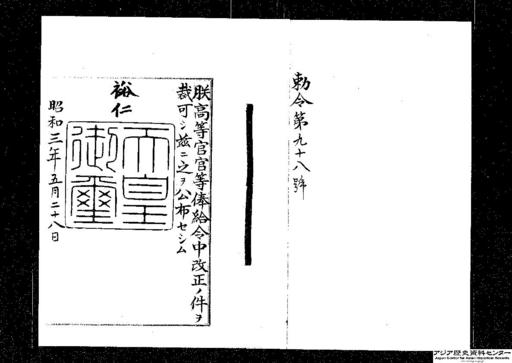 勅令第九十八號
朕高等官官等俸給令中改正ノ件ヲ
裁可シ玆ニ之ヲ公布セシム
裕仁
天皇
御璽
昭和三年五月二十八日
アジア歴史資料センター
Japan Center for Asian Historical Records